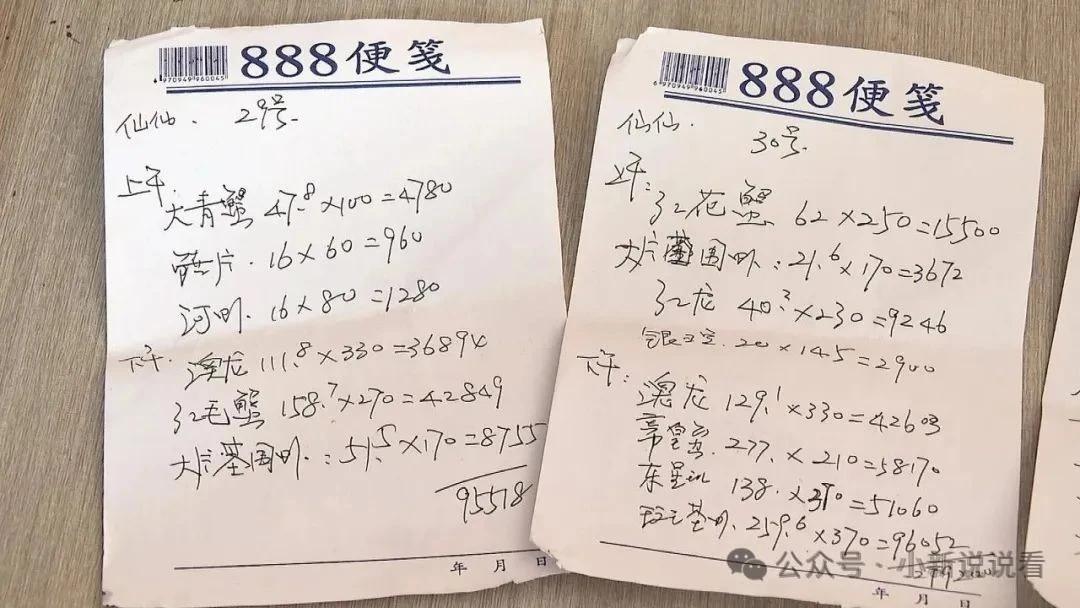 6 970949 960045
888便笺
仙仙. 29号.
上午.
大青蟹 47.8×100=4780
片. 16×60=960
河虾. 16×80=1280
下午. 澳龙 111.8×330=36894
红毛蟹 158.7×270=42849
大片基围虾:51.5×170=8755
95518
年 月 日
6 970949 960045
888便笺
仙仙.
30号.
上午:
红花蟹 62×250=15500
大片基围虾:21.6×170=3672
红龙 40.2×230=9246
20×145=2900
下午: 澳龙 129.1×330=42603
帝皇蟹. 277.×210=58170
东星斑 138.×370=51060
259.6×370=96052
年 月
公众号·小新说说看